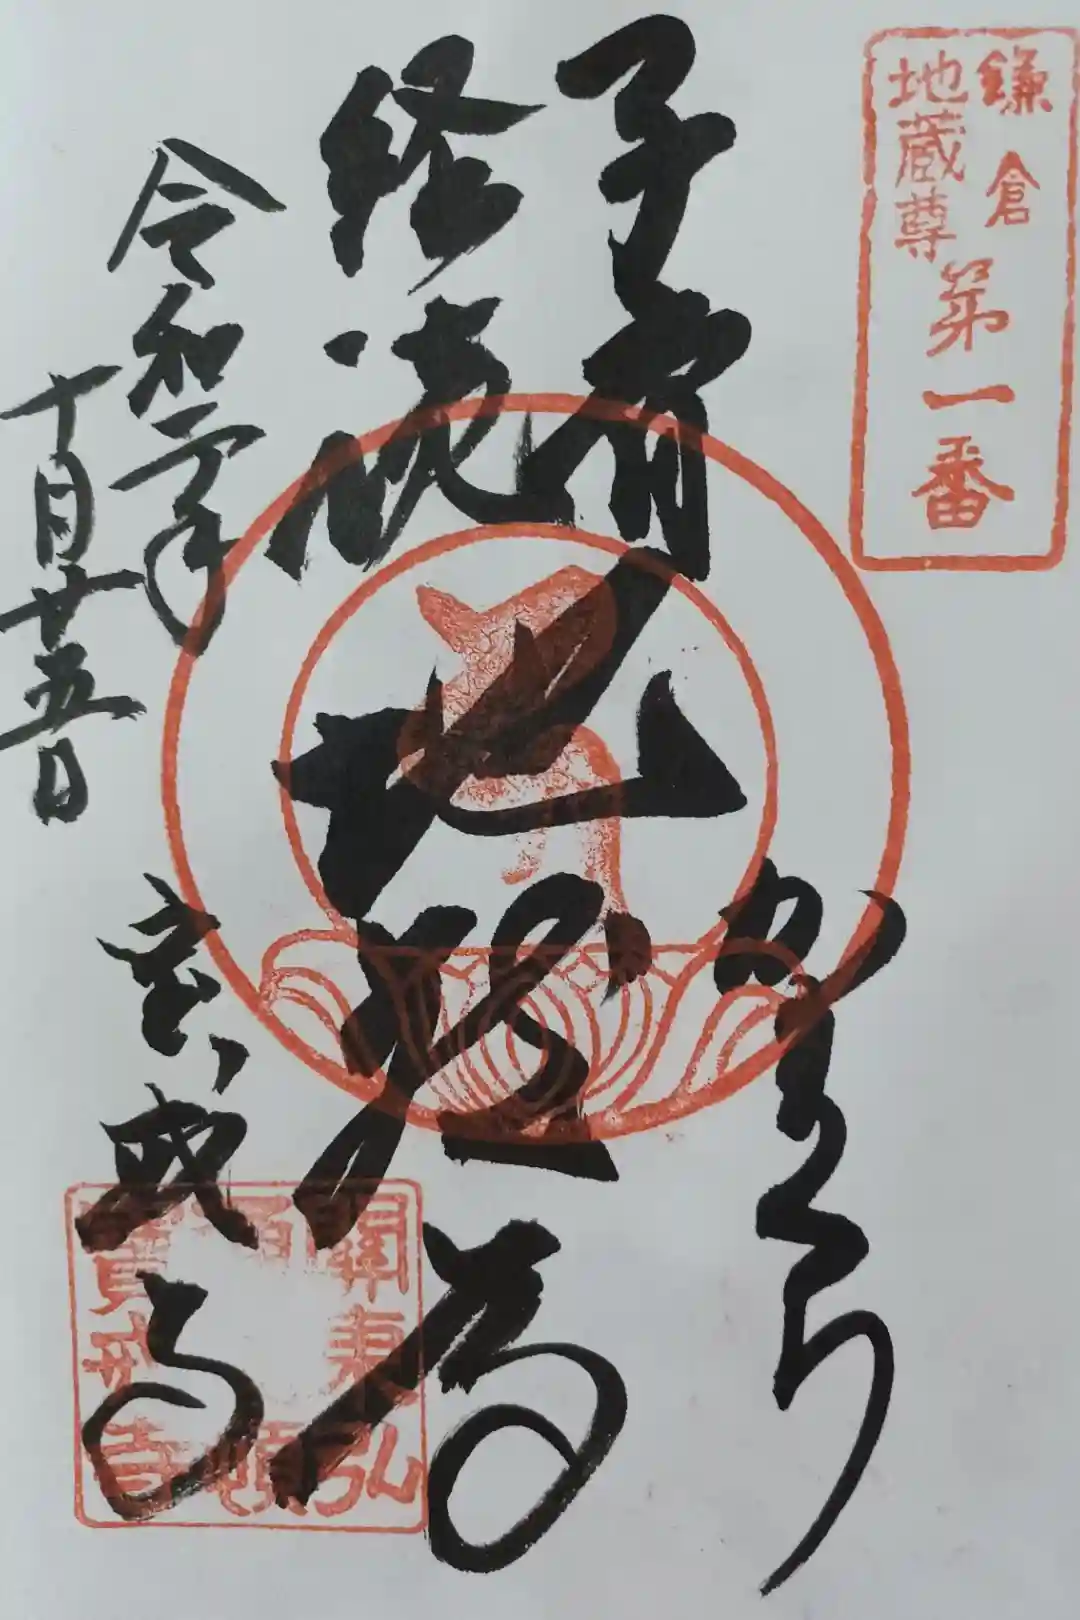 鎌倉
地蔵尊
第一番
かまくら
子育
経読
地蔵尊
令和二年
十月廿五日
宝戒寺
關東弘
頓
寶戒寺